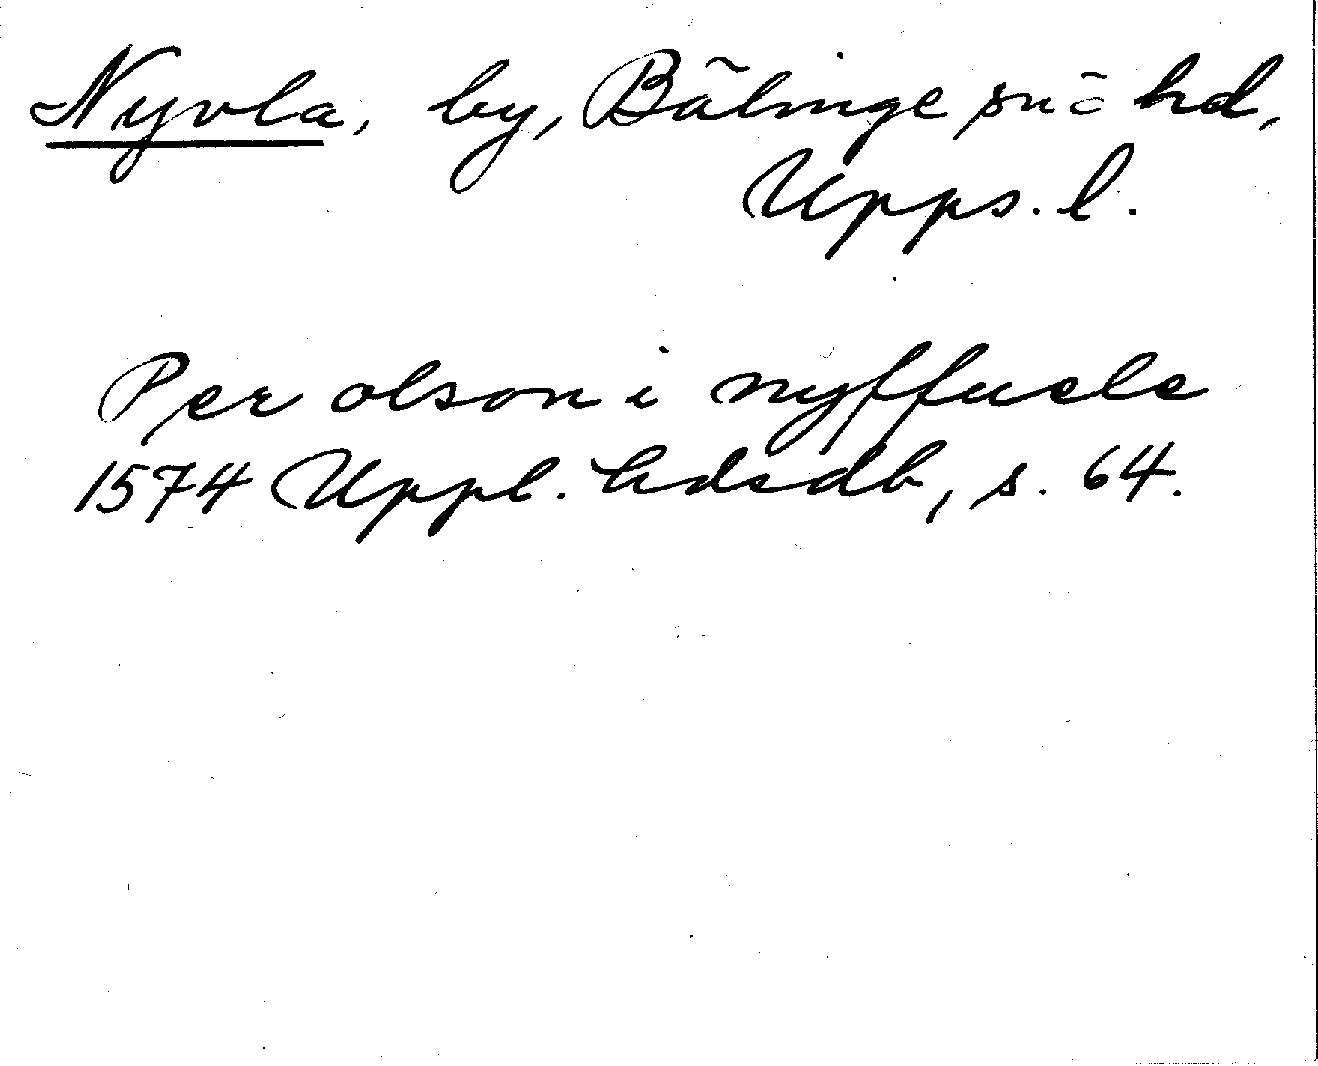 Nyvla, by, Bälinge sn o hd,
Upps. l.
Per olson i nyffuele
1574 Uppl. hdsdb, s. 64.